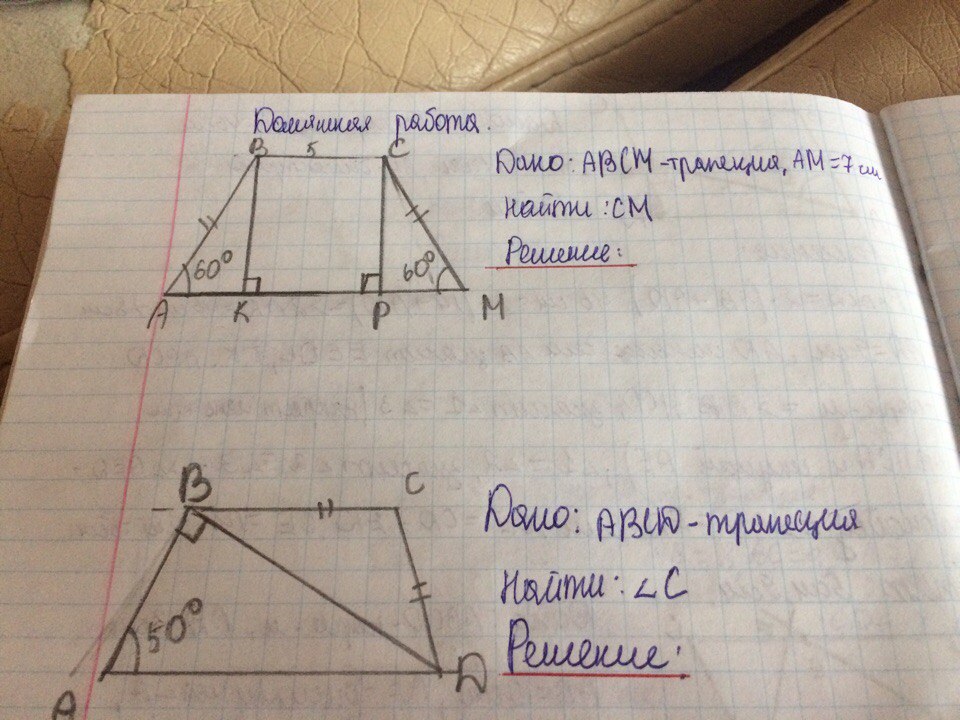 Домашняя работа.
B 5 C
Дано: ABCM - трапеция, AM = 7 см
Найти: CM
Решение:
60° 60°
A K P M
B C
Дано: ABCD - трапеция
Найти: ∠C
50°
Решение:
A D